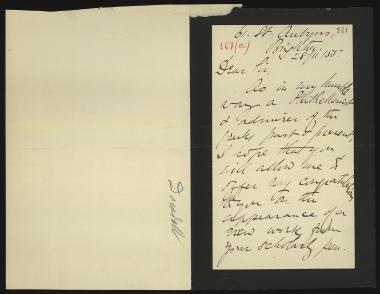 61. St. Aubyns,
831
Brighton
167(a)
28/11/85.
Dear Sir,
As in my humble
way a Philhellenist
& admirer of the
Greeks past & present,
I hope that you
will allow me to
offer my congratulations
to you on the
appearance of a
new work from
your scholarly pen.